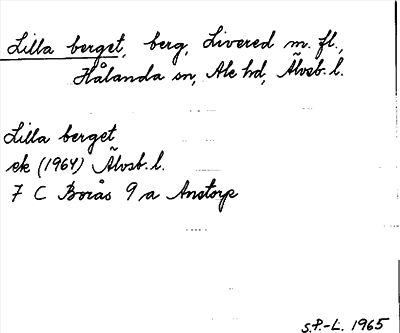 Lilla berget, berg, Livered m. fl.,
Hålanda sn, Ale hd, Älvsb. l.
Lilla berget
ek (1964) Älvsb. l.
7 C Borås 9 a Anstorp
S.P.-L. 1965